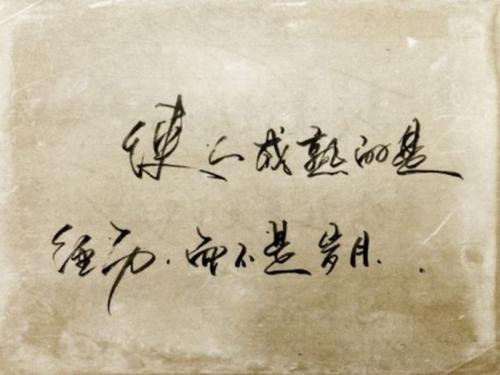 使人成熟的是
经历，而不是岁月..